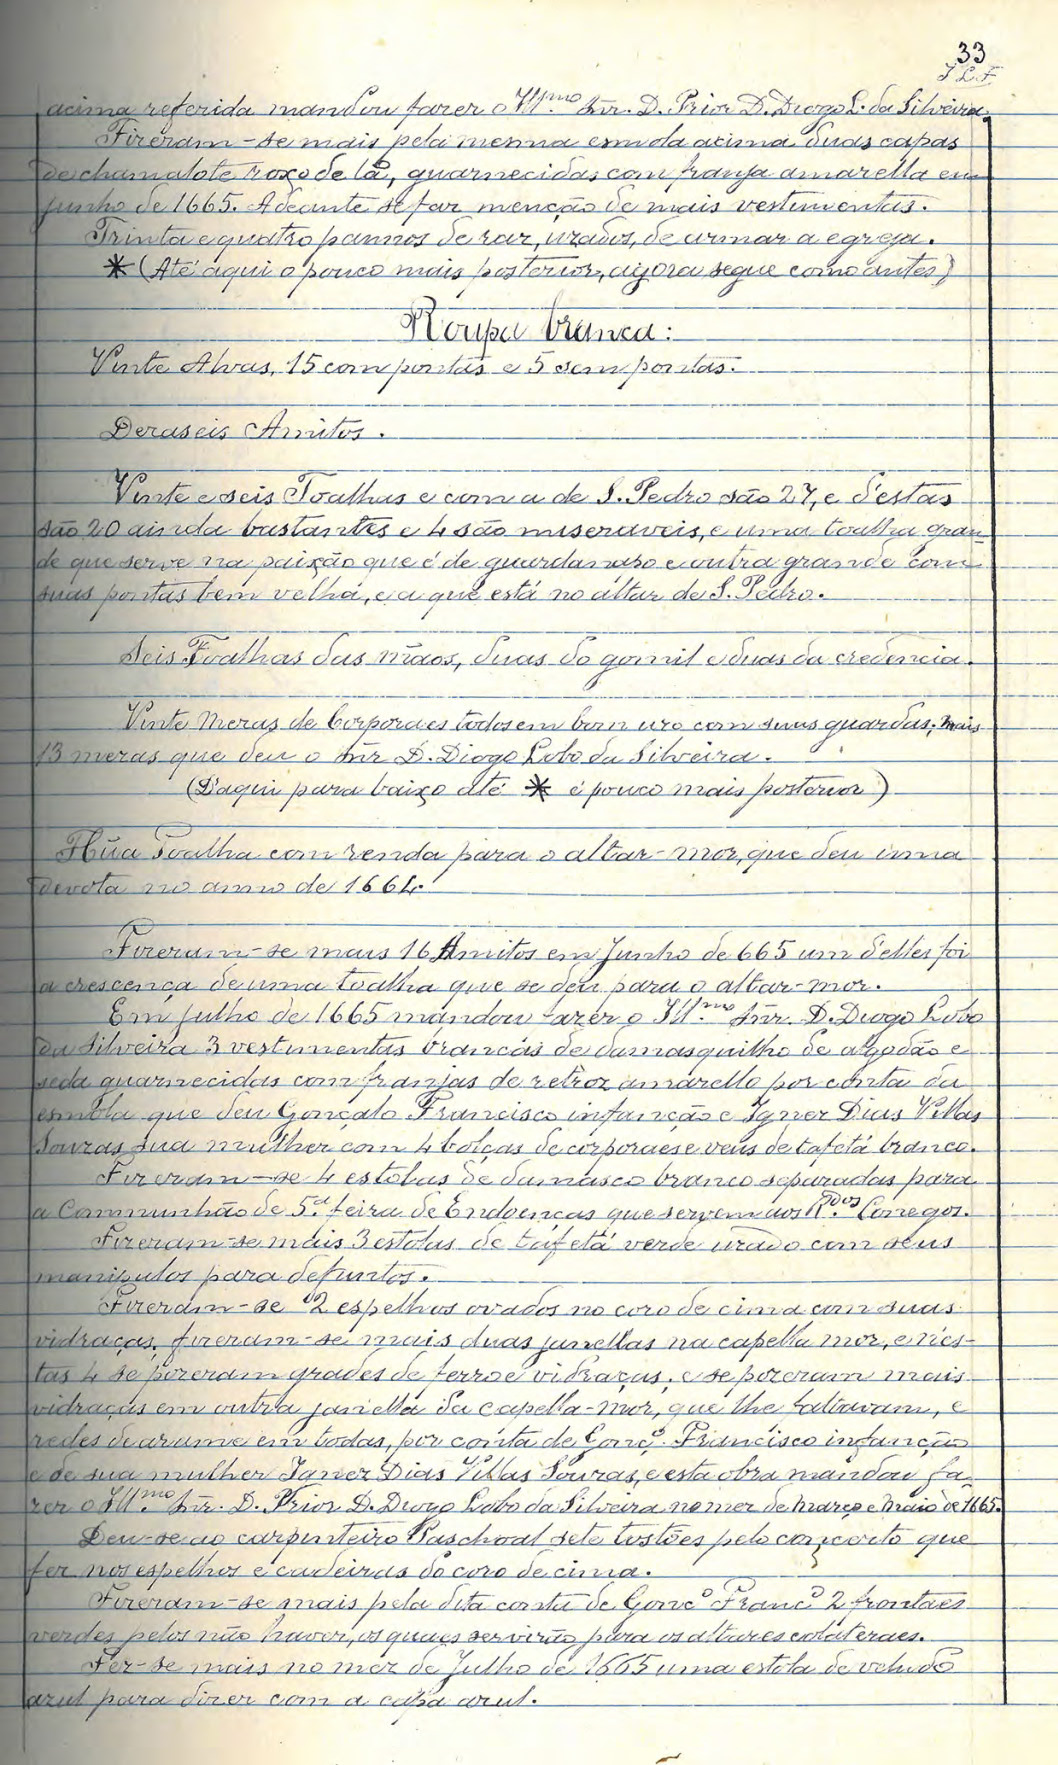 33
J L F
acima referida mandou fazer o Illmo Snr. D. Prior D. Diogo L. da Silveira.
Fizeram-se mais pela mesma esmola acima duas capas
de chamalote roxo de lã, guarnecidas com franja amarella em
junho de 1665. Adeante se faz menção de mais vestimentas.
Trinta e quatro pannos de raz, uzados, de armar a egreja.
* (Até aqui o pouco mais posterior, agora segue como antes)
Roupa branca:
Vinte Alvas, 15 com pontas e 5 sem pontas.
Dezaseis Amitos.
Vinte e seis Toalhas e com a de S. Pedro são 27, e d'estas
são 20 ainda bastantes e 4 são miseraveis, e uma toalha gran-
de que serve na paixão que é de guardanazo e outra grande com
suas pontas bem velha, e a que está no altar de S. Pedro.
Seis Toalhas das mãos, duas do gomil e duas da credencia.
Vinte Mezas de Corporaes todos em bom uzo com suas guardas; mais
13 mezas que deu o Snr D. Diogo Lobo da Silveira.
(D'aqui para baixo até * é pouco mais posterior)
Hũa Toalha com renda para o altar-mor, que deu uma
devota no anno de 1664.
Fizeram-se mais 16 Amitos em Junho de 665 um delles foi
a crescença de uma toalha que se deu para o altar-mor.
Em julho de 1665 mandou fazer o Ill.mo Snr. D. Diogo Lobo
da Silveira 3 vestimentas brancas de damasquilho de algodão e
seda guarnecidas com franjas de retroz amarello por conta da
esmola que deu Gonçalo Francisco infanção e Ignez Dias Villas
Souzas, sua mulher com 4 bolças de corporaes e veus de tafetá branco.
Fizeram-se 4 estolas de damasco branco separadas para
a Communhão de 5.a feira de Endoenças que servem aos R.dos Conegos.
Fizeram-se mais 3 estolas de tafetá verde uzado com seus
manipulos para defuntos.
Fizeram-se 2 espelhos ovados no coro de cima com suas
vidraças, fizeram-se mais duas janellas na capella mor, e n'es-
tas 4 se pozeram grades de ferro e vidraças, e se pozeram mais
vidraças em outra janella da capella-mor, que lhe faltavam, e
redes de arame em todas, por conta de Gonç.o Francisco infanção
e de sua mulher Ignez Dias Villas Souzas, e esta obra mandou fa-
zer o Ill.mo Snr. D. Prior D. Diogo Lobo da Silveira no mez de Março e Maio de 1665.
Deu-se ao carpinteiro Paschoal sete tostões pelo concerto que
fez nos espelhos e cadeiras do coro de cima.
Fizeram-se mais pela dita conta de Gonc.o Franc.o 2 frontaes
verdes pelos não haver, os quaes servirão para os altares colateraes.
Fez-se mais no mez de Julho de 1665 uma estola de veludo
azul para dizer com a capa azul.